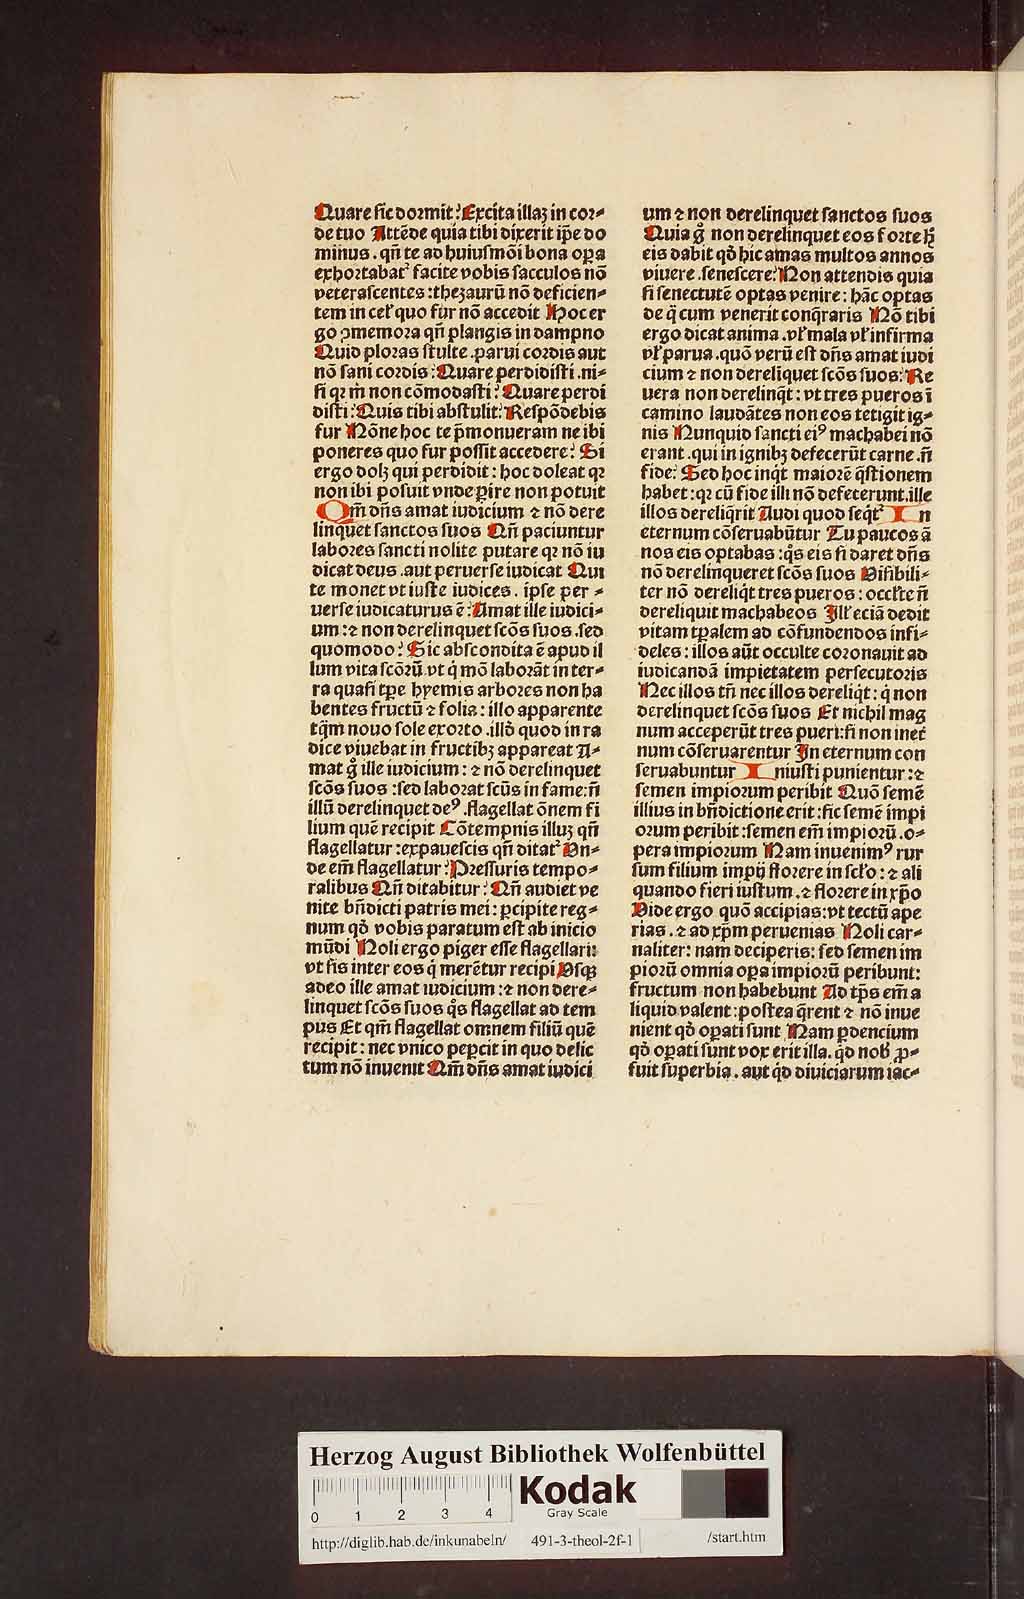 Quare sic dormit? Excita illaȝ in cor⸗
de tuo Attēde quia tibi dixerit ip̄e do
minus . qn̄ te ad huiusmōi bona oꝑa
exhortabat᷑ facite vobis sacculos nō
veterascentes : theȝaurū nō deficien⸗
tem in cel̉ quo fur nō accedit Hoc er
go ꝯmemora qn̄ plangis in dampno
Quid ploras stulte . parui cordis aut
nō sani cordis? Quare perdidisti . ni⸗
si qꝛ m̄ non cōmodasti? Quare perdi
disti? Quis tibi abstulit? Respōdebis
fur Nōne hoc te p̄monueram ne ibi
poneres quo fur possit accedere? Si
ergo dolȝ qui perdidit : hoc doleat qꝛ
non ibi posuit vnde ꝑire non potuit
Qm̄ dn̄s amat iudicium ⁊ nō dere
linquet sanctos suos Qn̄ paciuntur
labores sancti nolite putare qꝛ nō iu
dicat deus . aut peruerse iudicat Qui
te monet vt iuste iudices . ipse per ⸗
uerse iudicaturus ē? Amat ille iudici⸗
um : ⁊ non derelinquet scōs suos . sed
quomodo? Sic abscondita ē apud il
lum vita scōrū. vt q̇ mō laborāt in ter⸗
ra quasi tꝑe hyemis arbores non ha
bentes fructū ⁊ folia : illo apparente
tq̄m nouo sole exorto . illd̉ quod in ra
dice viuebat in fructibȝ appareat A⸗
mat g̊ ille iudicium : ⁊ nō derelinquet
scōs suos : sed laborat scūs in fame: n̄
illū derelinquet deꝰ . flagellat ōnem fi
lium quē recipit Cōtempnis illuȝ qn̄
flagellatur : expauescis qn̄ ditat᷑ Vn⸗
de em̄ flagellatur? Pressuris tempo⸗
ralibus Qn̄ ditabitur? Qn̄ audiet ve
nite bn̄dicti patris mei : ꝑcipite reg⸗
num qd̉ vobis paratum est ab inicio
mūdi Noli ergo piger esse flagellari:
vt sis inter eos q̇ merētur recipi Vsqꝫ
adeo ille amat iudicium : ⁊ non dere⸗
linquet scōs suos q̊s flagellat ad tem
pus Et qm̄ flagellat omnem filiū quē
recipit : nec vnico peꝑcit in quo delic
tum nō inuenit Qm̄ dn̄s amat iudici
um ⁊ non derelinquet sanctos suos
Quia g̊ non derelinquet eos forte h̥
eis dabit qd̉ hic amas multos annos
viuere . senescere? Non attendis quia
si senectutē optas venire : hāc optas
de q̄ cum venerit conq̄raris Nō tibi
ergo dicat anima . vl̉ mala vl̉ infirma
vl̉ parua . quō verū est dn̄s amat iudi
cium ⁊ non dereliquet scōs suos? Re
uera non derelinq̇t : vt tres pueros ī
camino laudātes non eos tetigit ig⸗
nis Nunquid sancti eiꝰ machabei nō
erant . qui in ignibȝ defecerūt carne . n̄
fide? Sed hoc inq̇t maiorē q̄stionem
habet : qꝛ cū fide illi nō defecerunt. ille
illos dereliq̇rit Audi quod seq̇t᷑ In
eternum cōseruabūtur Tu paucos ā
nos eis optabas : q̊s eis si daret dn̄s
nō derelinqueret scōs suos Visibili⸗
ter nō dereliq̇t tres pueros : occl̉te n̄
dereliquit machabeos Ill̉ eciā dedit
vitam tꝑalem ad cōfundendos infi⸗
deles : illos aūt occulte coronauit ad
iudicandā impietatem persecutoris
Nec illos tn̄ nec illos dereliq̇t : q̇ non
derelinquet scōs suos Et nichil mag
num acceperūt tres pueri: si non in et̉
num cōseruarentur In eternum con
seruabuntur Iniusti punientur : ⁊
semen impiorum peribit Quō semē
illius in bn̄dictione erit : sic semē impi
orum peribit : semen em̄ impiorū . o⸗
pera impiorum Nam inuenimꝰ rur
sum filium impij florere in scl̉o : ⁊ ali
quando fieri iustum . ⁊ florere in xp̄o
Vide ergo quō accipias: vt tectū ape
rias . ⁊ ad xp̄m peruenias Noli car⸗
naliter: nam deciperis: sed semen im
piorū omnia oꝑa impiorū peribunt:
fructum non habebunt Ad tp̄s em̄ a
liquid valent : postea q̄rent ⁊ nō inue
nient qd̉ oꝑati sunt Nam ꝑdencium
qd̉ oꝑati sunt vox erit illa . q̇d nob̉ ꝓ⸗
fuit superbia . aut q̇d diuiciarum iac⸗
Herzog August Bibliothek Wolfenbüttel
0 1 2 3 4
Kodak
Gray Scale
http://diglib.hab.de/inkunabeln/ 491-3-theol-2f-1 /start.htm